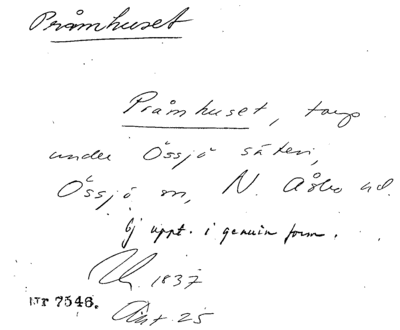 Pråmhuset
Pråmhuset, torp
under Össjö säteri,
Össjö sn, N. Åsbo hd.
Ej uppt. i genuin form.
1837
Nr 7546.
25